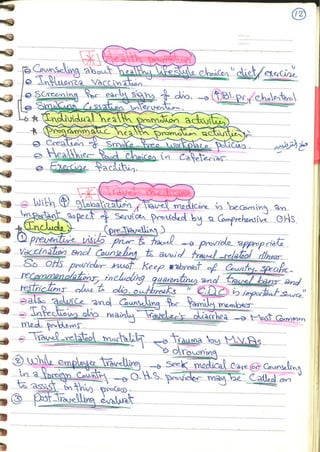 12
* Health promotion
Counseling about healthy lifestyle choices "diet/exercise
Influenza vaccination.
Screening for early signs of dis. → (↑Bl.pr/cholestrol
Smoking Cessation intervention.
* Individual health promotion activities
* programmatic health promotion activities
Creation of smoke-free workplace policies.
Healthier food choices in Cafeterias
Exercise Facilities.
* Travel medicine
With ↑ globalization, travel medicine is becoming an
important aspect of services provided by a Comprehensive OHS.
* Include (pre travelling)
① preventive visits prior to travel → provide appropriate
vaccination and Counseling to avoid travel-related illness.
So OHS provider must keep abreast of Country-specific
recommendations, including quarantine and travel bans and
restrictions due to dis. outbreaks "CDC is important source"
also advice and Counseling for family members.
Infectious dis mainly Traveler's diarrhea → Most Common
med problems.
Travel-related mortality → Trauma by M.V.As
→ drowning
② While employee travelling → Seek medical Care or Counseling
in a foreign Country → O.H.S. provider may be Called on
to assist in this process.
③ post Travelling evaluat